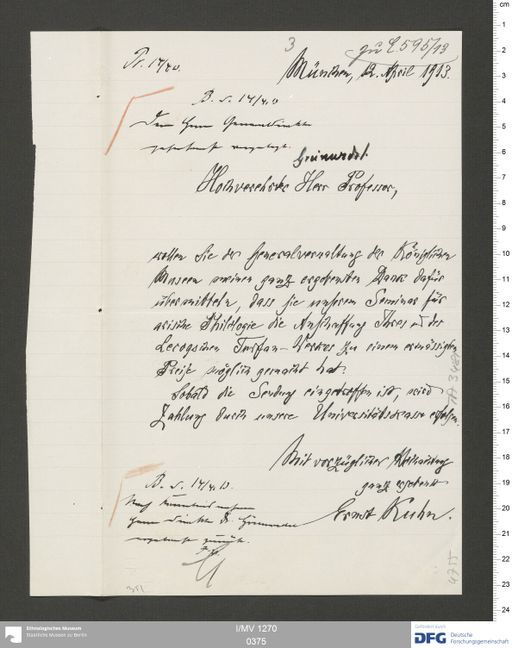 3
zu E. 595/13
Pr. 14/4 13.
München, 12. April 1913.
B. r. 14/4. 13
Dem Herrn Generaldirektor
gehorsamst vorgelegt.
Grünwedel
Hochverehrter Herr Professor,
wollen Sie der Generalverwaltung der Königlichen
Museen meinen ganz ergebensten Dank dafür
übermitteln, dass sie unserem Seminar für
arische Philologie die Anschaffung Ihres u. des
Lecoqschen Turfan-Werkes zu einem ermässigten
Preise möglich gemacht hat.
Sobald die Sendung eingetroffen ist, wird
Zahlung durch unsere Universitätskasse erfolgen.
Mit vorzüglicher Hochachtung
ganz ergebenst
Ernst Kuhn.
B. r. 14/4. 13.
Nach Kenntnisnahme
Herrn Direktor Dr. Grünwedel
ergebenst zurück.
351
4755
Ethnologisches Museum
Staatliche Museen zu Berlin
I/MV 1270
0375
Gefördert durch
DFG
Deutsche
Forschungsgemeinschaft
cm
1
2
3
4
5
6
7
8
9
10
11
12
13
14
15
16
17
18
19
20
21
22
23
24